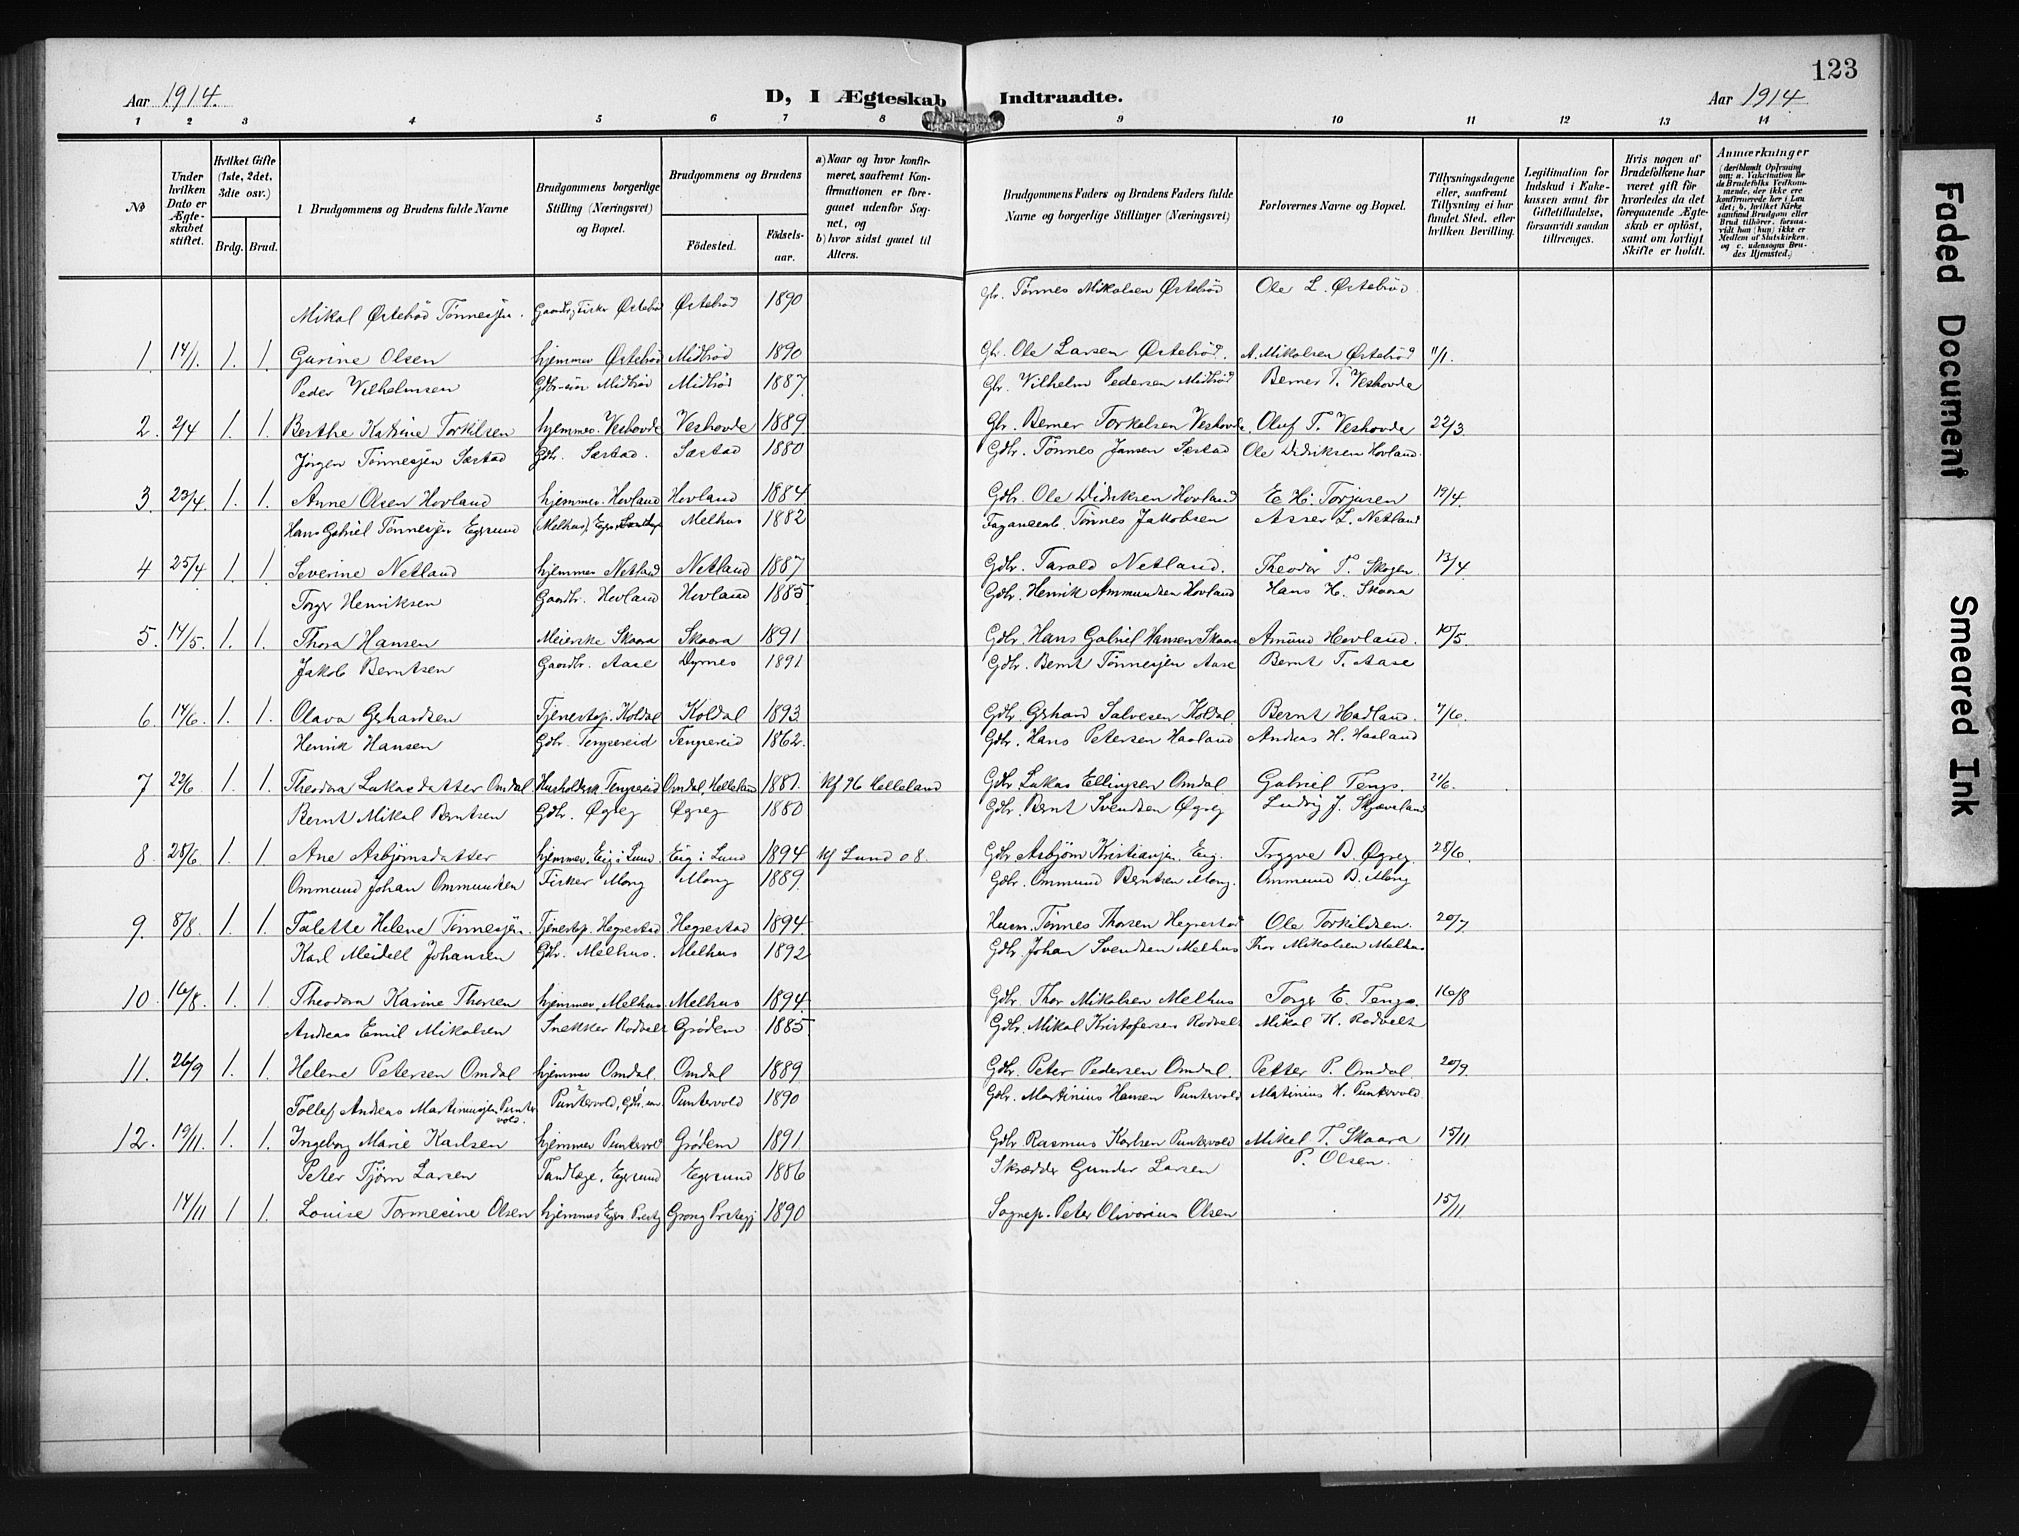 123
Aar 1914.
D, I Ægteskab Indtraadte.
Aar 1914
1 2 3 4 5 6 7 8 9 10 11 12 13 14
No
Under hvilken Dato er Ægteskabet stiftet.
Hvilket Gifte (1ste, 2det, 3die osv.)
Brdg. Brud.
Brudgommens og Brudens fulde Navne
Brudgommens borgerlige Stilling (Næringsvei) og Bopæl.
Brudgommens og Brudens
Födested. Födsels-aar.
a) Naar og hvor konfirmeret, saafremt Konfirmationen er foregaaet udenfor Sognet, og
b) hvor sidst gaaet til Alters.
Brudgommens Faders og Brudens Faders fulde Navne og borgerlige Stillinger (Næringsvei)
Forlovernes Navne og Bopæl.
Tillysningsdagene eller, saafremt Tillysning ei har fundet Sted, efter hvilken Bevilling.
Legitimation for Indskud i Enkekassen samt for Giftetilladelse, forsaavidt saadan tiltrænges.
Hvis nogen af Brudefolkene har været gift för hvorledes da det foregaaende Ægteskab er oplöst, samt om lovligt Skifte er holdt.
Anmærkninger
(deriblandt Oplysning om: a. Vakcination for de Brudefolks Vedkommende, der ikke ere konfirmerede her i Landet; b. hvilket Kirkesamfund Brudgom eller Brud tilhörer, forsaavidt han (hun) ikke er Medlem af Statskirken, og c. udensogns Brudes Hjemsted.)
Mikal Østebød Tönnesjen. Gaardbr, Fisker Østebød Østebrød 1890 Gbr. Tönnes Mikalsen Østebrød Ole L. Østebrød
1. 14/1. 1. 1. Gurine Olsen hjemmev Østebrød Midbrød 1890 Gbr. Ole Larsen Østebrød. A. Mikalsen Østebrød 11/1.
Peder Vilhelmsen Gdbr-sön Midbrød Midbrød 1887. Gbr. Vilhelm Pedersen Midbrød Berner T. Veshovde
2. 2/4 1. 1. Berthe Katrine Torkilsen hjemmev. Veshovde Veshovde 1889 Gbr. Berner Torkelsen Veshovde Oluf T. Veshovde 22/3.
Jörgen Tönnesjen Sæstad Gdbr. Sæstad. Sæstad 1880 Gdbr. Tönnes Jansen Sæstad Ole Didriksen Hovland.
3. 23/4. 1. 1. Anne Olsen Hovland hjemmev. Hovland Hovland 1884 Gdbr. Ole Didriksen Hovland E. H. Torjusen 19/4.
Hans Gabriel Tönnesjen Egersund Melhus 1882 Tönnes Jakobsen Asser L. Netland
4 25/4 1. 1. Severine Netland hjemmev Netland Netland 1887 Gdbr. Tarald Netland. Theodor T. Skogen. 13/4
Torger Henriksen Gaardbr. Hovland Hovland 1885. Gdbr. Henrik Ammundsen Hovland Hans H. Skaara
5. 14/5. 1. 1. Thora Hansen Meierske Skaara Skaara 1891 Gdbr. Hans Gabriel Hansen Skaara Amund Hovland. 10/5
Jakob Berntsen Gaardbr. Aase Dyrnes 1891 Gdbr. Bernt Tönnesjen Aase Bernt T. Aase
6. 14/6. 1. 1. Olava Gerhardsen Tjenestep. Koldal Koldal 1893 Gdbr Gerhard Salvesen Koldal Bernt Hadland. 7/6.
Henrik Hansen Gdbr. Tengereid Tengereid 1862. Gdbr. Hans Petersen Haaland Andreas H. Haaland
7 22/6 1. 1. Theodora Lukasdatter Omdal Husholdersk. Tengereid Omdal, Helleland 1881. Kf 96 Helleland Gdbr Lukas Ellingsen Omdal Gabriel Tengs. 21/6.
Bernt Mikal Berntsen Gdbr. Øgreg Øgreg 1880 Gdbr. Bernt Svendsen Øgreg Ludvig J. Skjæveland
8. 28/6 1. 1. Ane Asbjørnsdatter hjemmev, Eig i Lund. Eig i Lund 1894 Kf Lund 08. Gdbr Asbjørn Kristiansen Eig. Trygve B. Øgreg. 28/6.
Ommund Johan Ommundsen Fisker Mong Mong 1889. Gdbr. Ommund Berntsen Mong. Ommund B. Mong
9. 8/8. 1. 1. Talette Helene Tönnesjen. Tjenestep. Hegrestad Hegrestad 1894. Husm. Tönnes Thorsen Hegrestad Ole Torkildsen. 20/7
Karl Meidell Johansen Gdbr. Melhus. Melhus 1892 Gdbr. Johan Svendsen Melhus Thor Mikalsen Melhus
10. 16/8. 1. 1 Theodora Karine Thorsen hjemmev, Melhus Melhus 1894. Gdbr. Thor Mikalsen Melhus Torger E. Tengs. 16/8
Andreas Emil Mikalsen Snekker Rodvelt Grødem 1885. Gdbr. Mikal Kristofersen Rodvelt Mikal K. Rodvelt
11. 26/9 1. 1. Helene Petersen Omdal hjemmev Omdal. Omdal 1889. Gdbr. Peter Pedersen Omdal. Petter P. Omdal. 20/9.
Tollef Andreas Martinusjen Puntervold. Puntervold, Gdbr. Puntervold 1890 Gdbr. Martinius Hansen Puntervold Matinius H. Puntervold
12. 19/11. 1. 1. Ingeborg Marie Karlsen hjemmev Puntervold Grødem 1891. Gdbr Rasmus Karlsen Puntervold Mikel T. Skaara 15/11
Peter Tjörn Larsen Tandlæge, Egersund Egersund 1886 Skrædder Gunder Larsen P. Olsen.
14/11 1 1. Louise Tormesine Olsen hjemmev Egers. Prestg Grong Prstegj 1890 Sognep. Peter Olivarius Olsen 15/11.
Faded Document
Smeared Ink